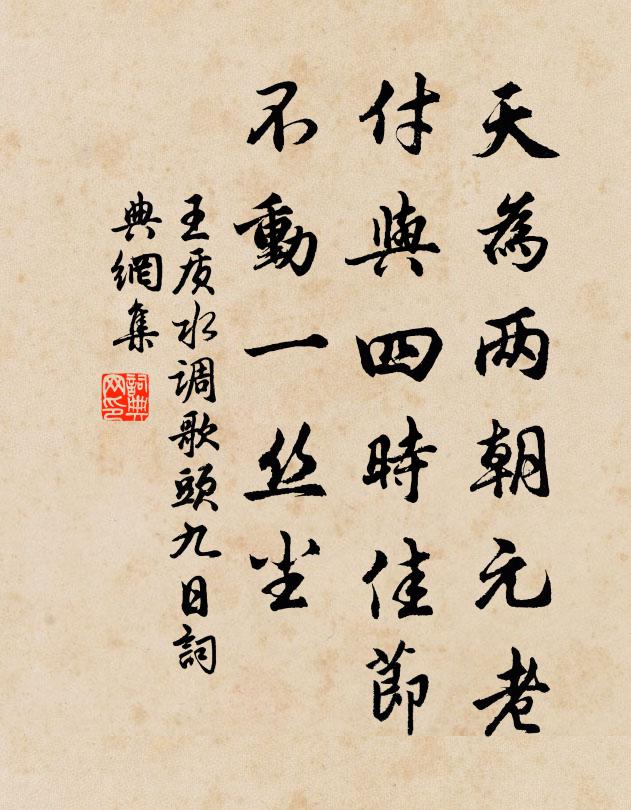 天為两朝元老
付與四時佳節
不動一丝尘
王质水调歌頭九日詞
典網集
詞典网印